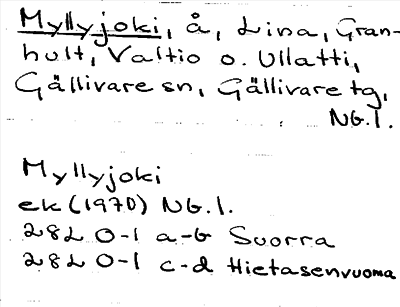 Myllyjoki, å, Lina, Gran-
hult, Valtio o. Ullatti,
Gällivare sn, Gällivare tg,
Nb.l.
Myllyjoki
ek (1970) Nb.l.
28L 0-1 a-b Suorra
28L 0-1 c-d Hietasenvuoma